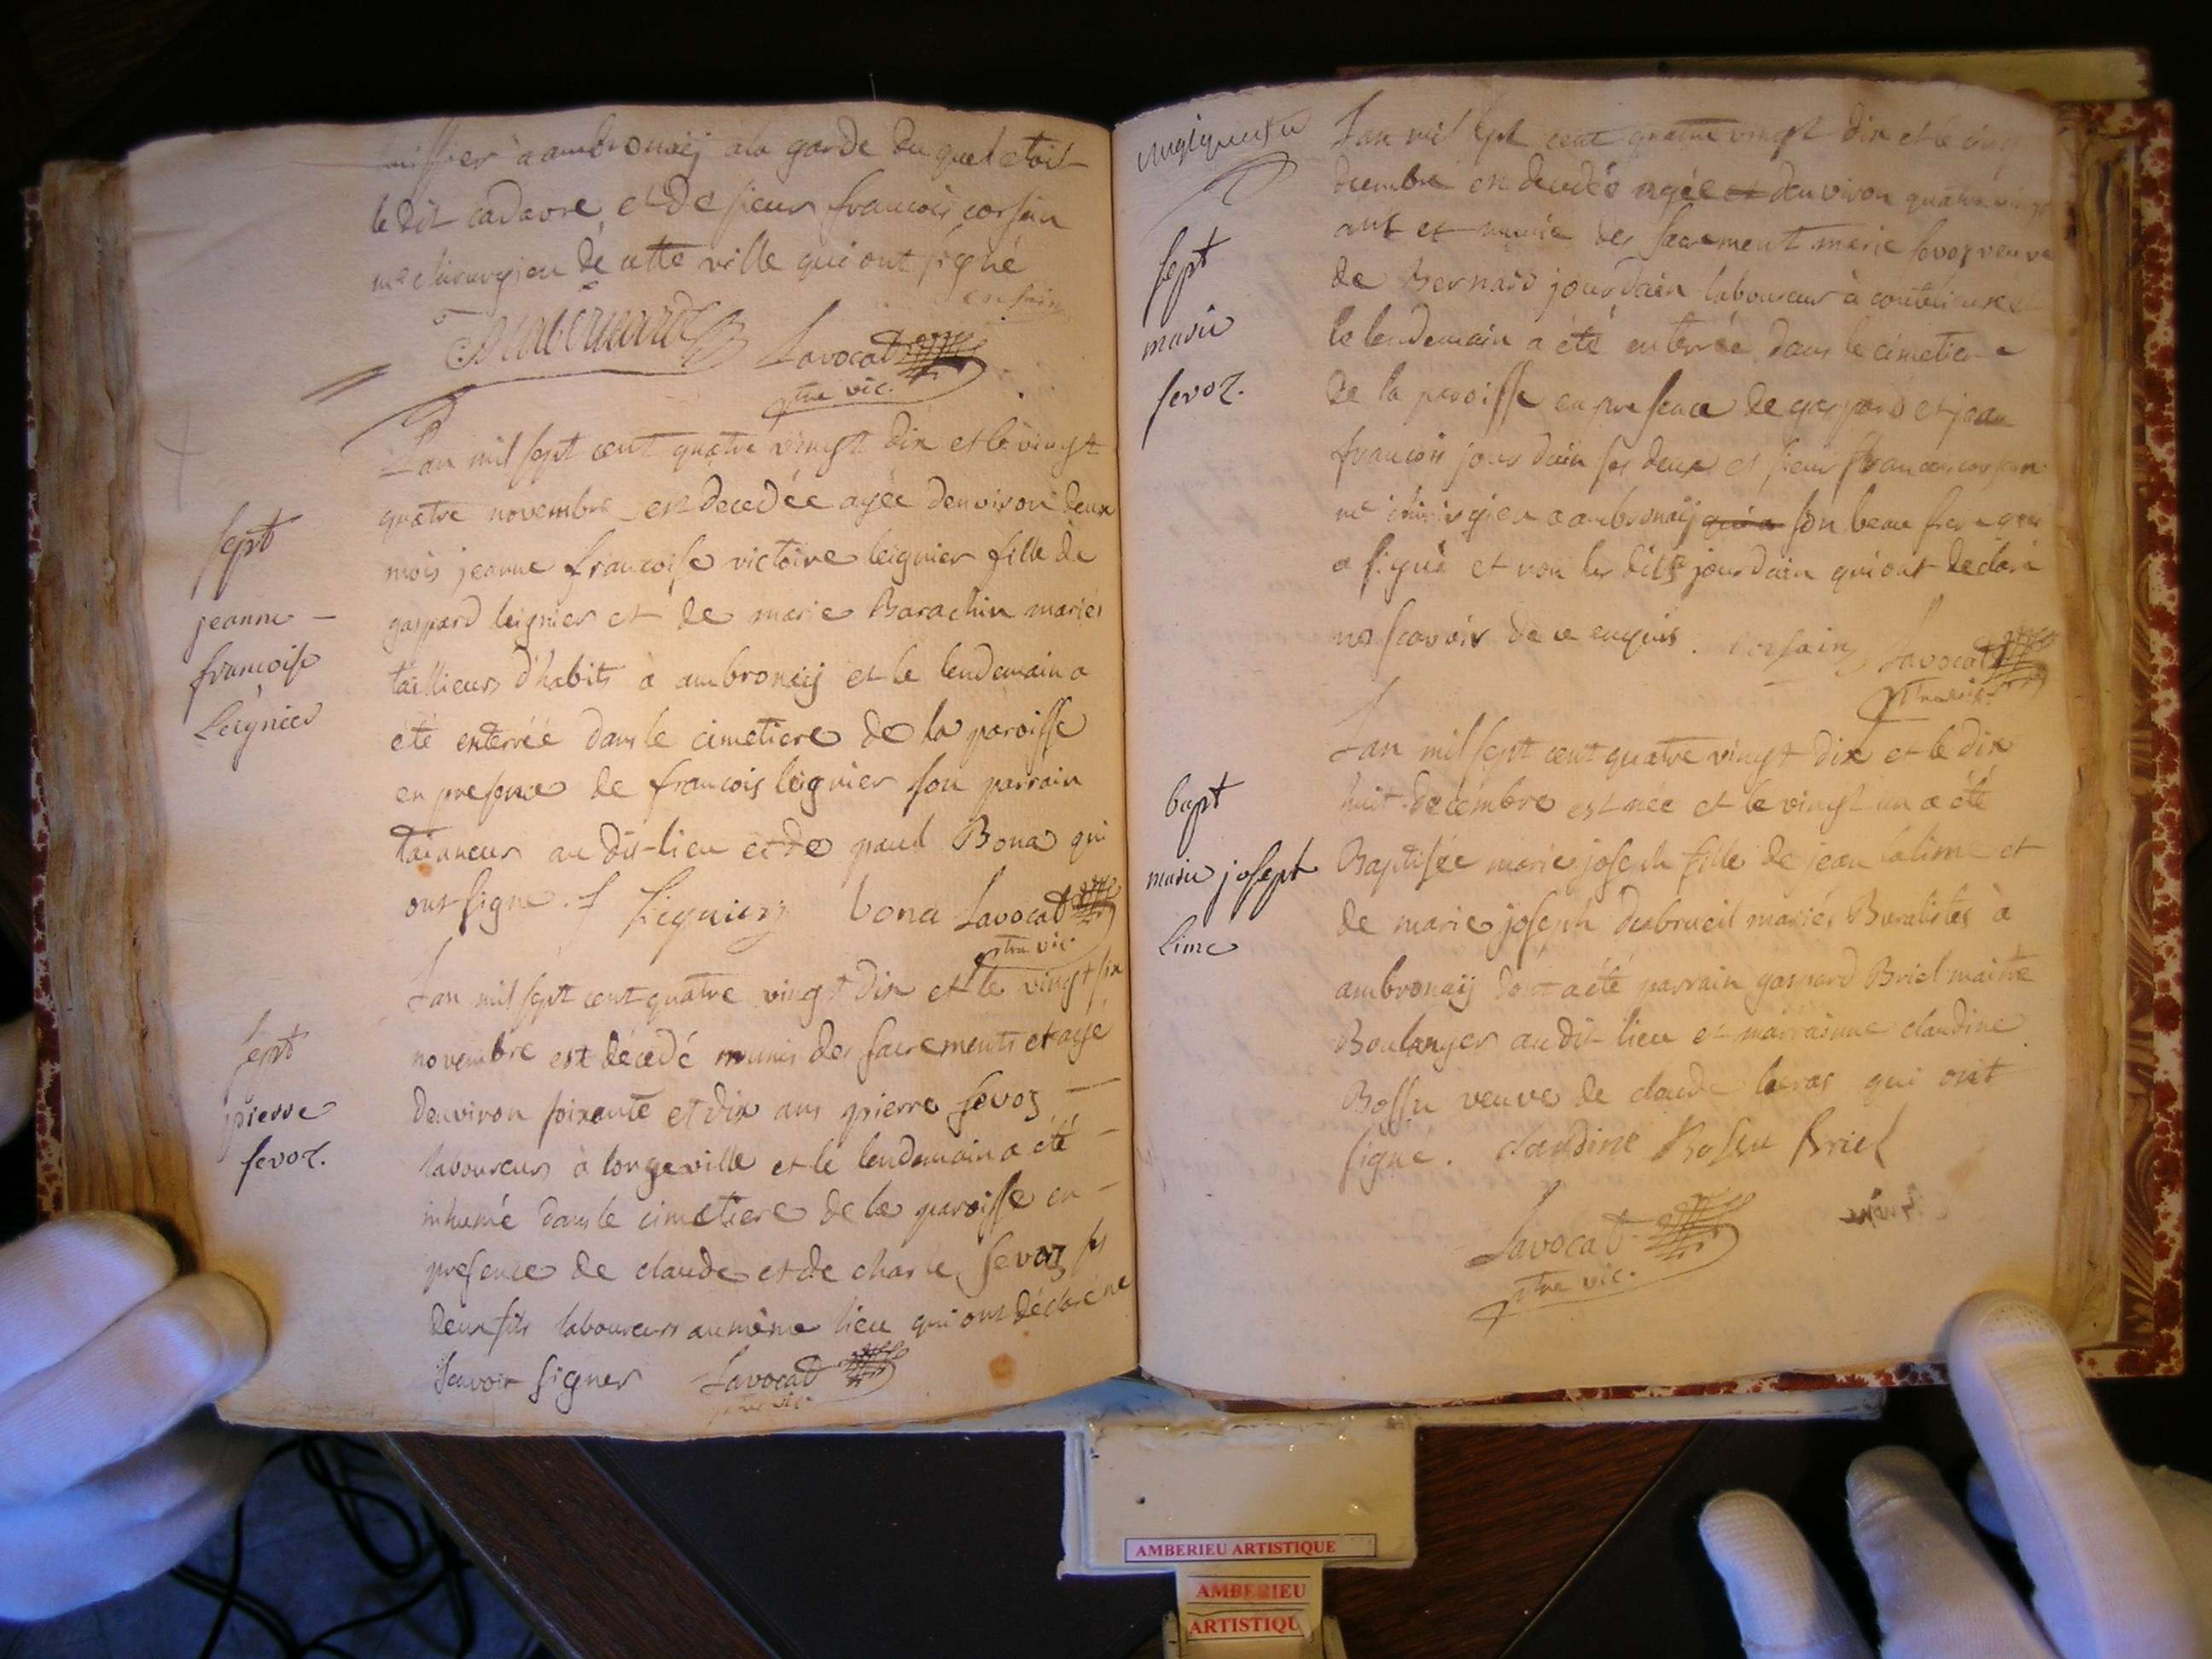 huissier a ambronaÿ à la garde du quel etoit
le dit cadavre et de sieur francois corsain
me chirurgien de cette ville qui ont signé
corsain
Lavocat
ptre vic.
L'an mil sept cent quatre vingt dix et le vingt
sept
quatre novembre est decedée agée denviron deux
mois jeanne francoise victoire leignier fille de
jeanne
gaspard leignier et de marie Barachin mariés
francoise
taillieurs d'habits a ambronaÿ et le lendemain a
Leignier
été enterréé dans le cimetiere de la paroisse
en presence de francois leignier son parrain
tainneur au dit lieu et de paul Bona qui
ont signe. f Leignier bona Lavocat
ptre vic.
L'an mil sept cent quatre vingt dix et le vingt six
sept
novembre est décedé munis des sacrements et agé
pierre
denviron soixante et dix ans pierre sevoz
sevoz.
laboureurs à longeville et le lendemain a été
inhumé dans le cimetiere de la paroisse en
presence de claude et de charle sevoz ses
deux fils laboureurs au même lieu qui ont déclaré ne
scavoir signer Lavocat
ptre vic.
L'an mil sept cent quatre vingt dix et le cinq
decembre est decedée agée et denviron quatre vingt
sept
ans et munie des sacrement marie sevoz veuve
marie
de Bernard jourdain laboureur à coutelieux et
sevoz.
le lendemain a été enterrée dans le cimetiere
de la paroisse en presence de gaspard et jean
francois jourdain ses deux et sieur francois corsain
me chirurgien a ambronaÿ qui a son beau frere qui
a signé et non les dits jourdain qui ont declaré
ne scavoir de ce enquis. corsain Lavocat
ptre vic.
L'an mil sept cent quatre vingt dix et le dix
bapt
huit decembre est née et le vingt un a été
marie josept
Baptisée marie joseph fille de jean lime et
Lime
de marie joseph dubrueil mariés Buralistes à
ambronaÿ dont a été parrain gaspard Briel maitre
Boulanger au dit lieu et marrainne claudine
Bossu veuve de claude leras qui ont
signé. claudine Bossu Briel
Lavocat
ptre vic.
AMBERIEU ARTISTIQUE
AMBERIEU
ARTISTIQU